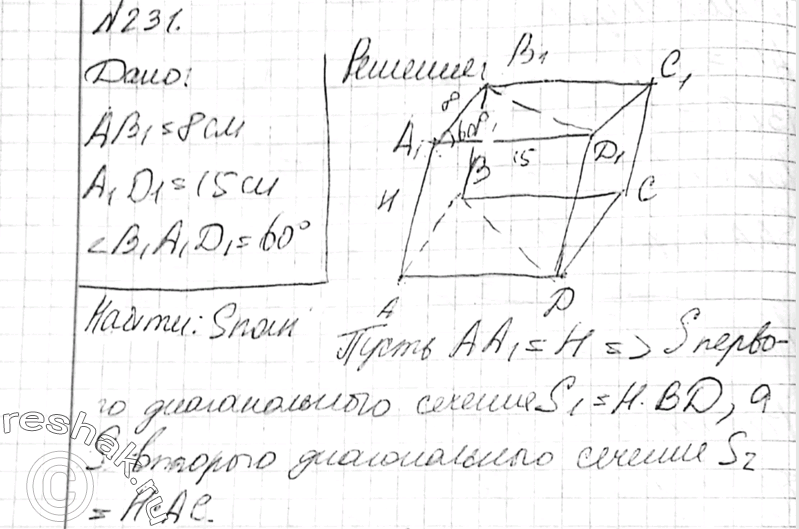 N231.
Дано:
AB₁=8см
A₁D₁=15см
∠B₁A₁D₁=60°
Найти: Sполн
Решение:
B₁
C₁
8
A₁
60°
15
D₁
B
H
C
A
D
Пусть AA₁=H => S перво-
го диагонального сечение S₁=H·BD, а
S второго диагонального сечение S₂
=H·AC.
© reshak.ru